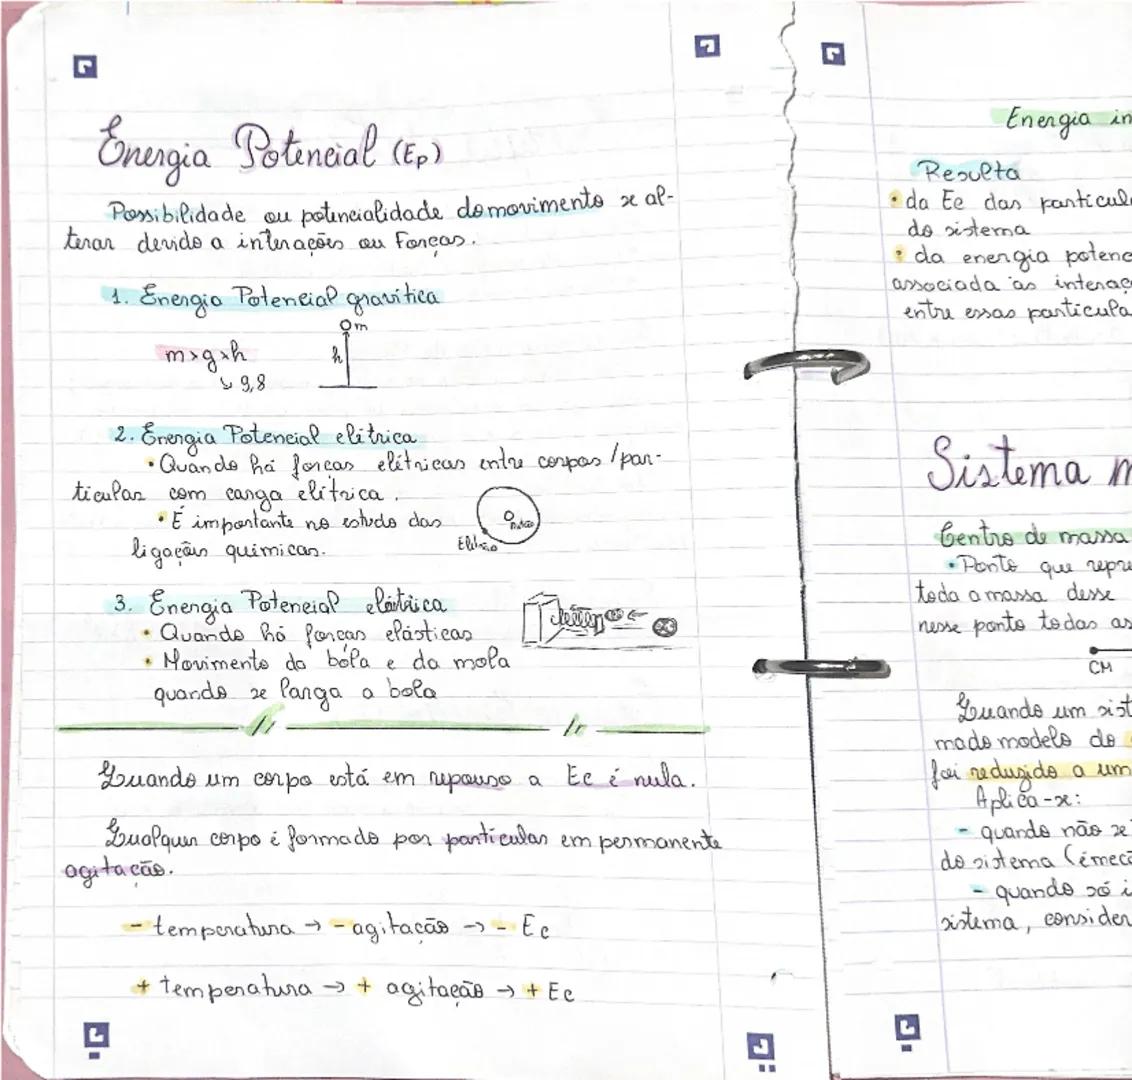 Energia Potencial (Ep)
Possibilidade ou potencialidade do movimento se al-
terar devido a interações ou Forças.
1. Energia Potencial gravítica
m
m×g×h
h
↳ 9,8
2. Energia Potencial elétrica
• Quando há forças elétricas entre corpos / par-
ticulas com carga elétrica.
• É importante no estudo das
ligações químicas.
Eletrão
3. Energia Potencial elástica
• Quando há forças elásticas
• Movimento da bola e da mola
quando se larga a bola
Quando um corpo está em repouso a Ec é nula.
Qualquer corpo é formado por partículas em permanente
agitação.
- temperatura → - agitação → - Ec
+ temperatura → + agitação → + Ec
Energia in
Resulta
• da Ec das particul
do sistema
• da energia potenc
associada às interaç
entre essas particula
Sistema m
Centro de massa
• Ponto que repre
toda a massa desse
nesse ponto todas as
CM
Quando um sist
mado modelo do
foi reduzido a um
Aplica-se:
- quando não se
do sistema (émecâ
- quando só i
sistema, consider